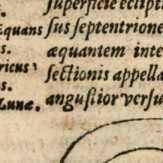 superficie eclipt
Equans sus septentrione
s. æquantem inte
ricus sectionis appella
s. angustior versu
Lunæ.